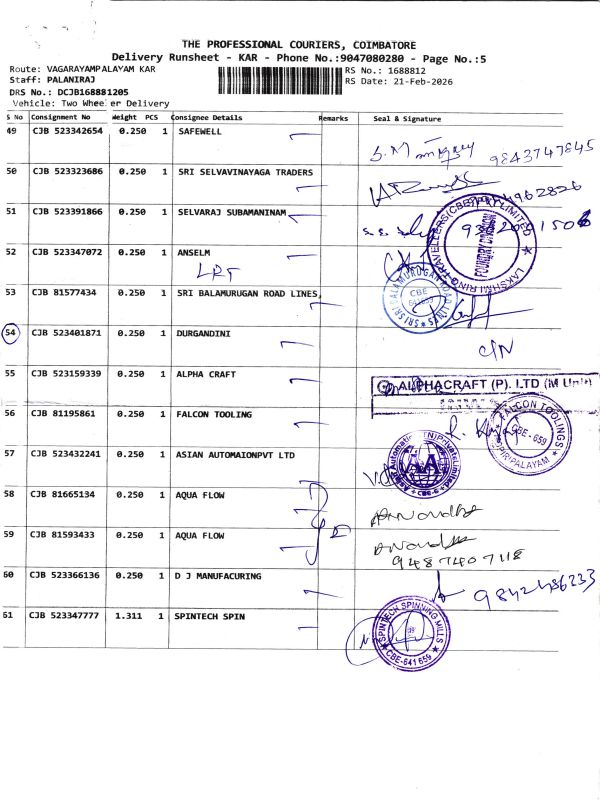 THE PROFESSIONAL COURIERS, COIMBATORE
Delivery Runsheet - KAR - Phone No.:9047080280 - Page No.:5
Route: VAGARAYAMPALAYAM KAR
RS No.: 1688812
Staff: PALANIRAJ
RS Date: 21-Feb-2026
DRS No.: DCJB168881205
Vehicle: Two Wheeler Delivery
S No Consignment No Weight PCS Consignee Details Remarks Seal & Signature
49 CJB 523342654 0.250 1 SAFEWELL
9843747845
50 CJB 523323686 0.250 1 SRI SELVAVINAYAGA TRADERS
51 CJB 523391866 0.250 1 SELVARAJ SUBAMANINAM
LAKSHMI RING TRAVELLERS(CBE)(P)LIMITED
FOUNDRY DIVISION
52 CJB 523347072 0.250 1 ANSELM
LRT
53 CJB 81577434 0.250 1 SRI BALAMURUGAN ROAD LINES,
SRI BALAMURUGAN ROAD LINES
CBE
641659
54 CJB 523401871 0.250 1 DURGANDINI
C/N
55 CJB 523159339 0.250 1 ALPHA CRAFT
ALPHACRAFT (P). LTD (M Unit)
56 CJB 81195861 0.250 1 FALCON TOOLING
FALCON TOOLINGS
CBE-659
57 CJB 523432241 0.250 1 ASIAN AUTOMAIONPVT LTD
AA
CBE-6
58 CJB 81665134 0.250 1 AQUA FLOW
59 CJB 81593433 0.250 1 AQUA FLOW
9487407118
60 CJB 523366136 0.250 1 D J MANUFACURING
9842486233
61 CJB 523347777 1.311 1 SPINTECH SPIN
SPINTECH SPINNING MILLS
CBE-641 659